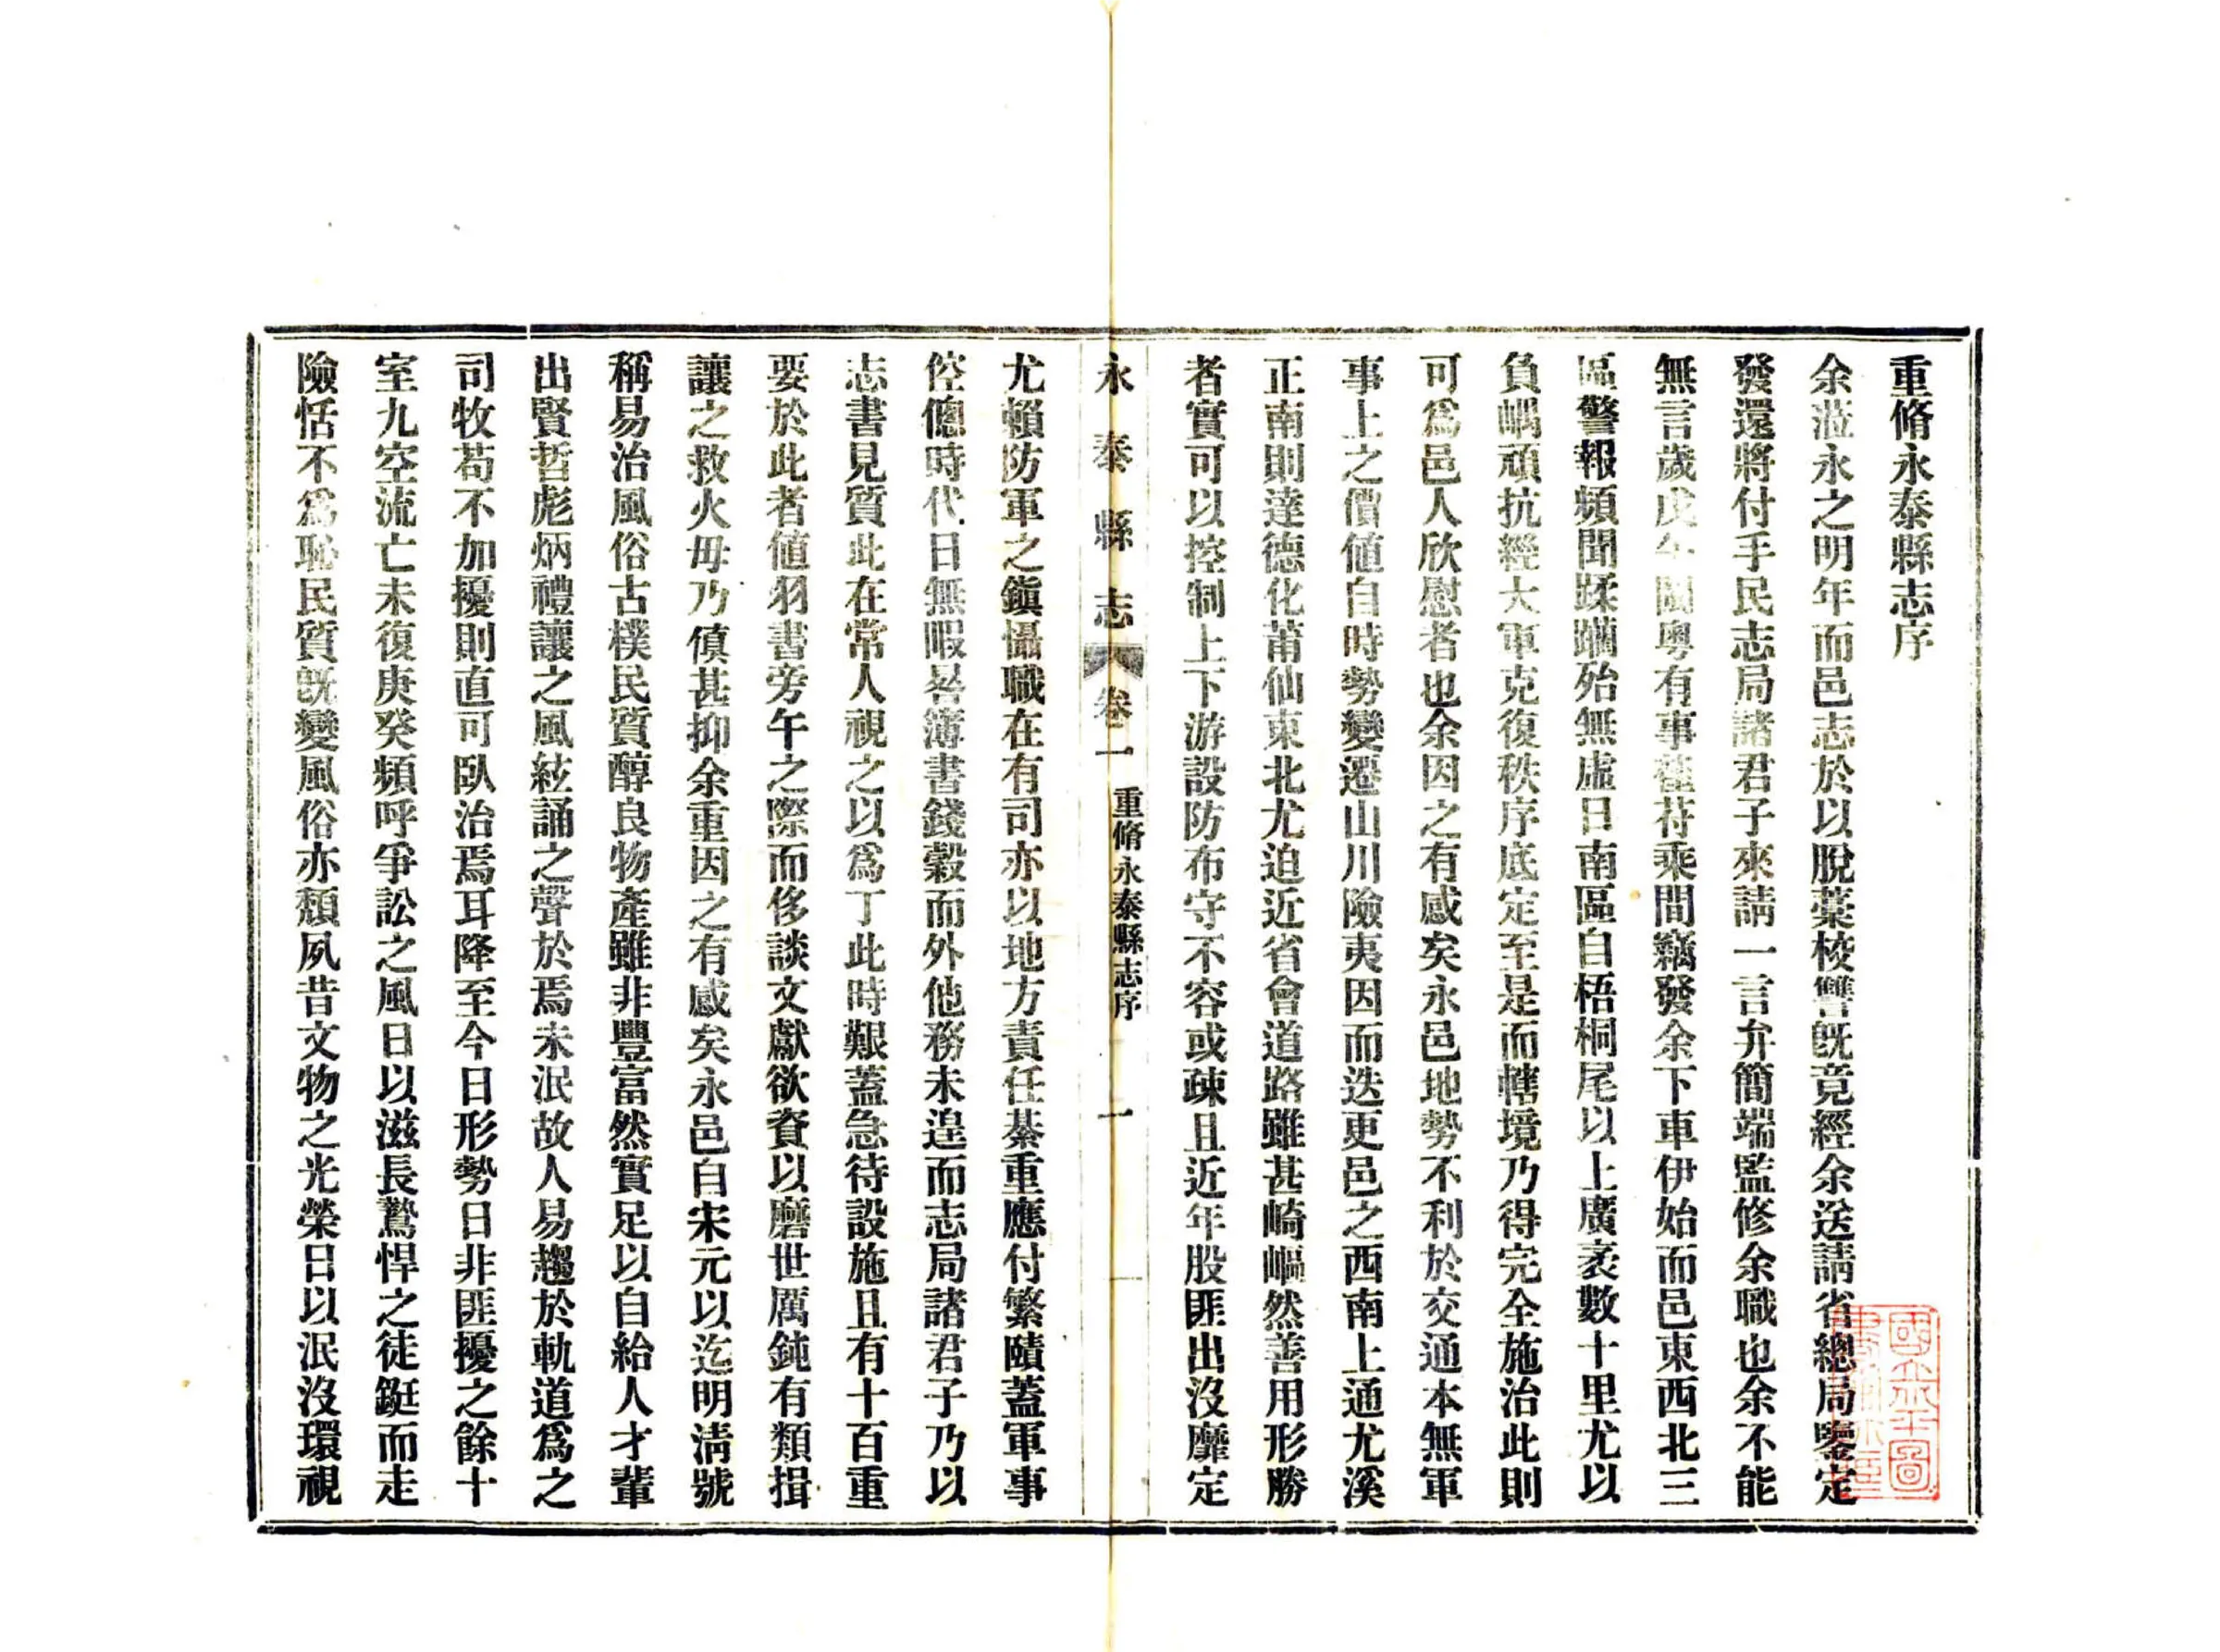 重脩永泰縣志序
余蒞永之明年而邑志於以脫藁校讐旣竟經余送請省總局鑒定
發還將付手民志局諸君子來請一言弁簡端監修余職也余不能
無言歲戊午閩粵有事萑苻乘間竊發余下車伊始而邑東西北三
區警報頻聞蹂躪殆無虛日南區自梧桐尾以上廣袤數十里尤以
負嵎頑抗經大軍克復秩序底定至是而轄境乃得完全施治此則
可爲邑人欣慰者也余因之有感矣永邑地勢不利於交通本無軍
事上之價値自時勢變遷山川險夷因而迭更邑之西南上通尤溪
正南則達德化莆仙東北尤迫近省會道路雖甚崎嶇然善用形勝
者實可以控制上下游設防布守不容或疎且近年股匪出沒靡定
永泰縣志 卷一 重脩永泰縣志序 一
尤賴防軍之鎭懾職在有司亦以地方責任綦重應付繁賾蓋軍事
倥傯時代日無暇晷簿書錢穀而外他務未遑而志局諸君子乃以
志書見質此在常人視之以爲丁此時艱蓋急待設施且有十百重
要於此者値羽書旁午之際而侈談文獻欲資以磨世厲鈍有類揖
讓之救火毋乃傎甚抑余重因之有感矣永邑自宋元以迄明淸號
稱易治風俗古樸民質醇良物產雖非豐富然實足以自給人才輩
出賢哲彪炳禮讓之風絃誦之聲於焉未泯故人易趨於軌道爲之
司牧苟不加擾則直可臥治焉耳降至今日形勢日非匪擾之餘十
室九空流亡未復庚癸頻呼爭訟之風日以滋長鷙悍之徒鋌而走
險恬不爲恥民質旣變風俗亦頹夙昔文物之光榮日以泯沒環視